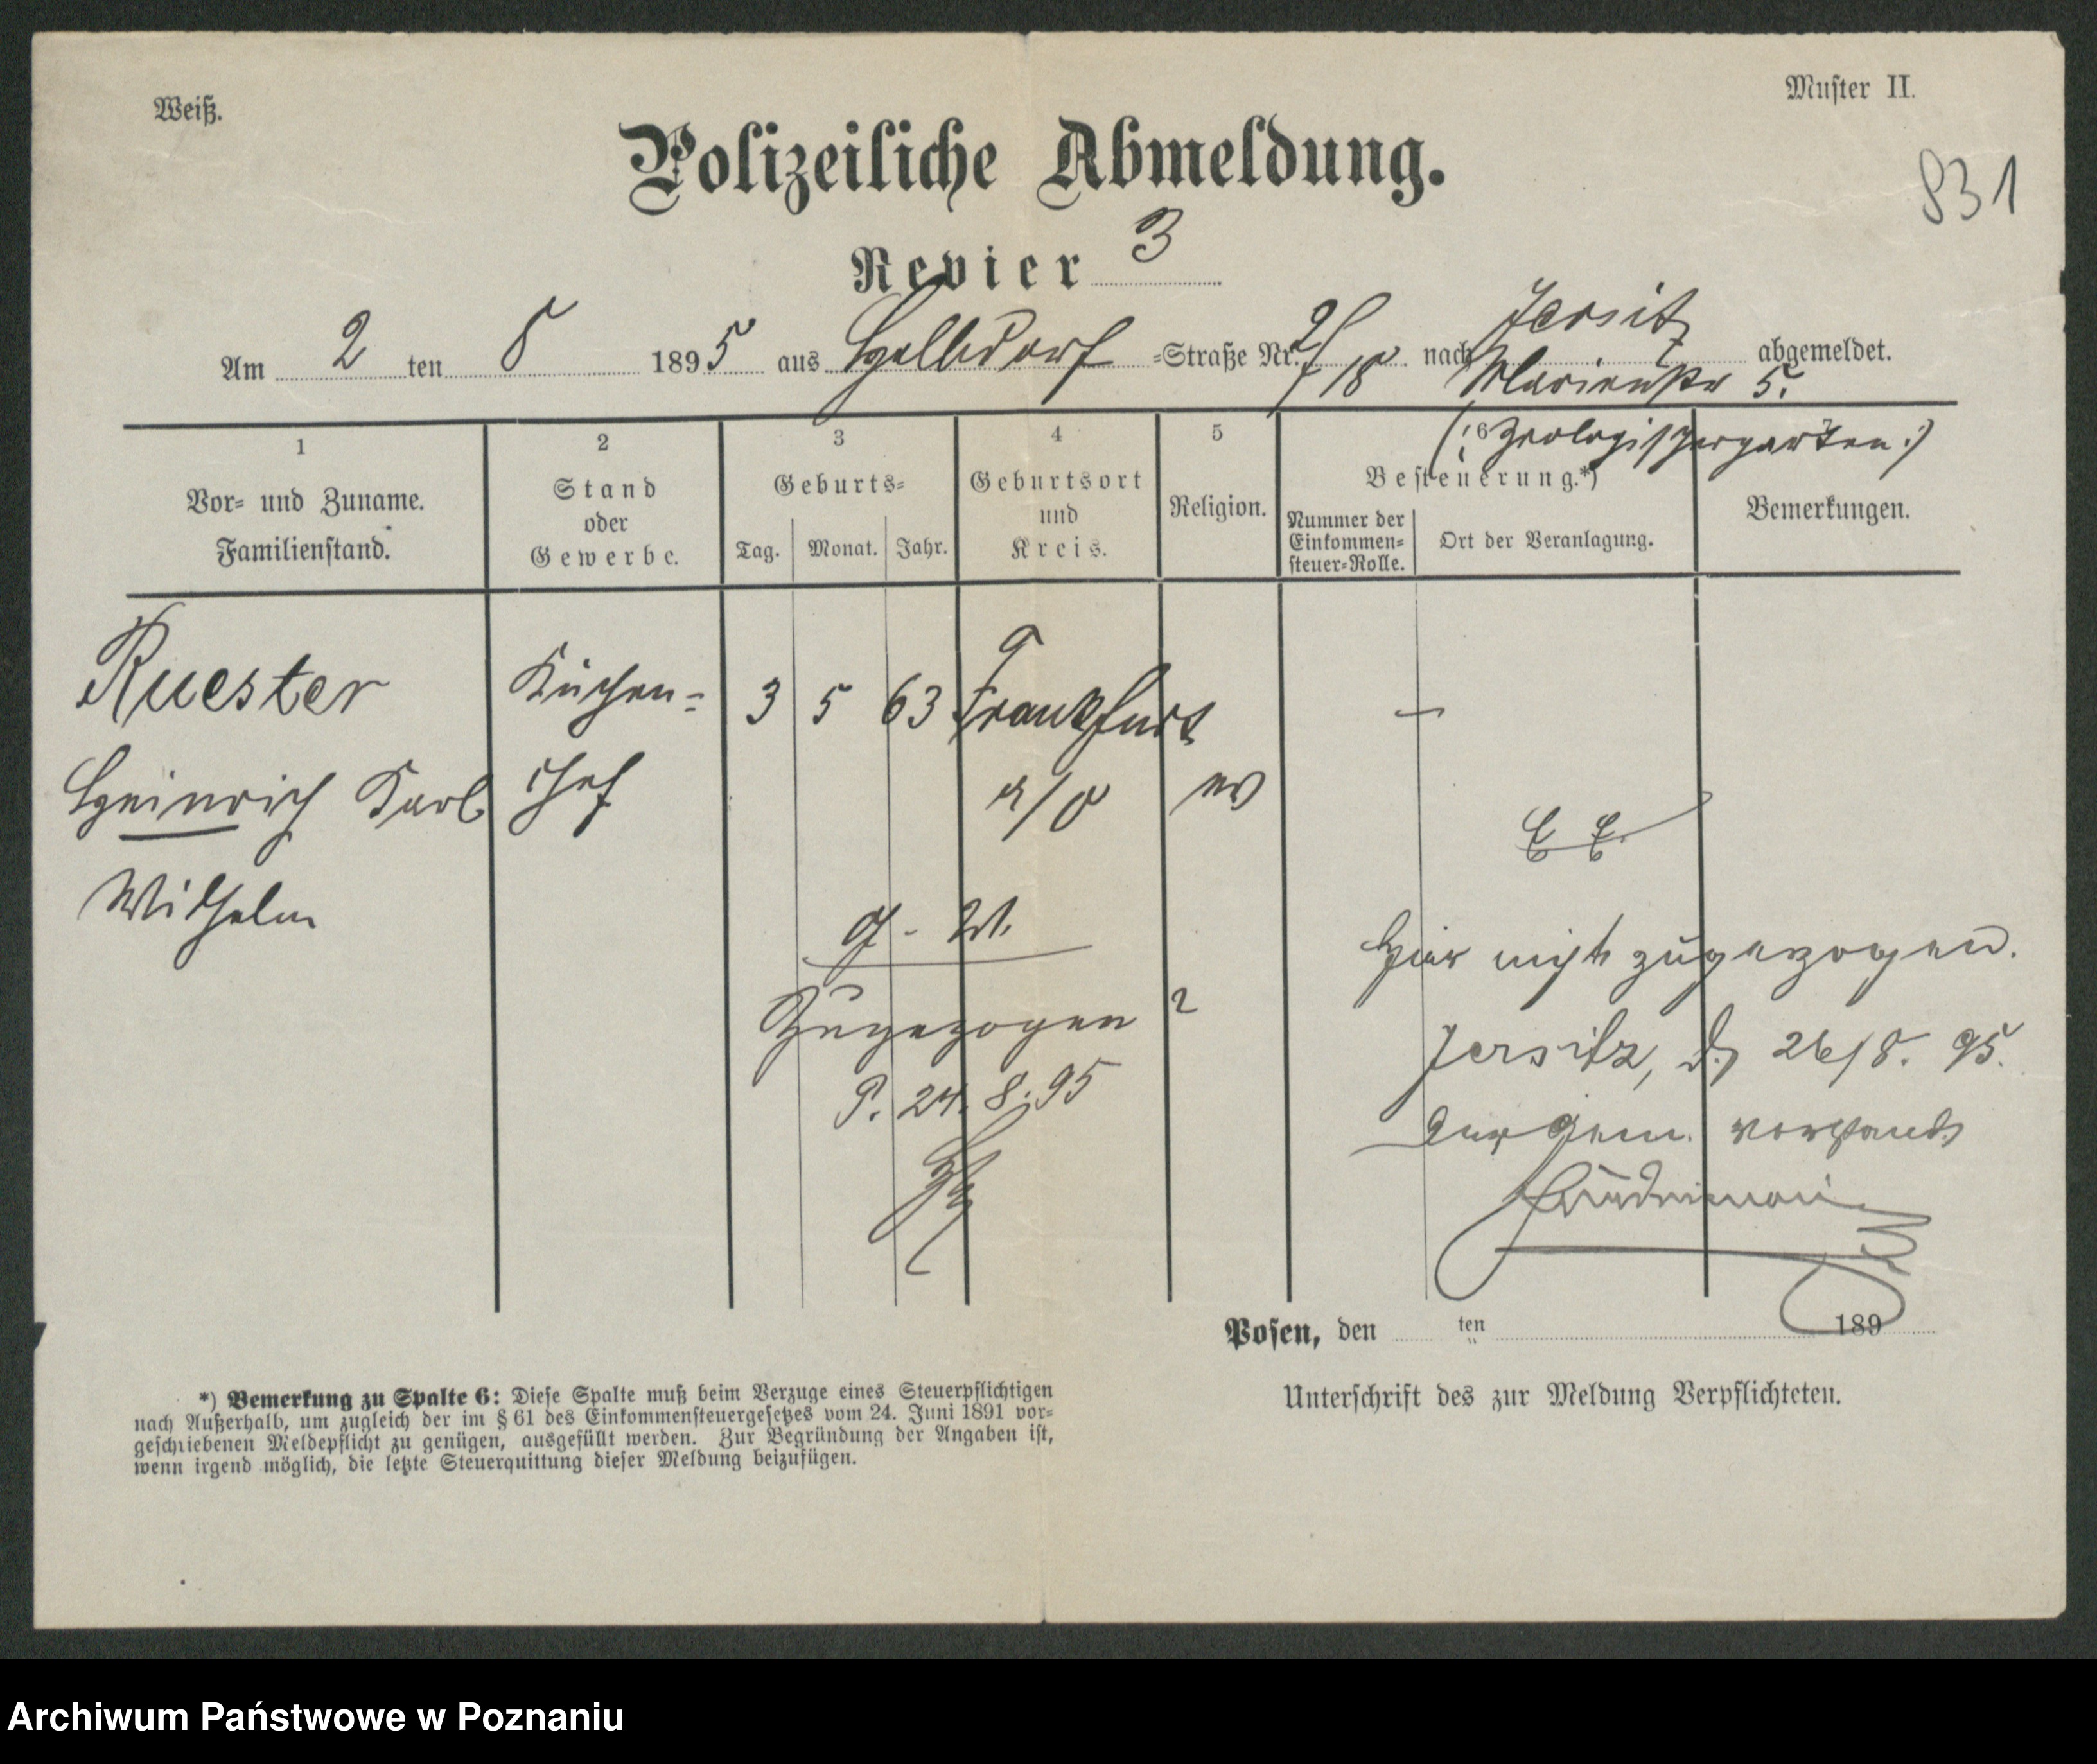 Weiß.
Muster II.
Polizeiliche Abmeldung.
831
Revier 3
Am 2 ten 8 1895 aus Halbdorf =Straße Nr. 17/18 nach Jersitz abgemeldet.
Marienstr 5.
(: Zoologischergarten :)
1
Vor= und Zuname.
Familienstand.
2
Stand
oder
Gewerbe.
3
Geburts=
Tag. Monat. Jahr.
4
Geburtsort
und
Kreis.
5
Religion.
6
Besteuerung.*)
Nummer der
Einkommen=
steuer=Rolle.
Ort der Veranlagung.
Bemerkungen.
Ruester Küchen= 3 5 63 Frankfurt
Heinrich Karl chef a/O ev
Wilhelm
Hier nicht zugezogen.
Zugezogen ?
Jersitz, d. 26/8. 95.
P. 24. 8. 95
Der Gem. Vorstand
Posen, den ten 189
Unterschrift des zur Meldung Verpflichteten.
*) Bemerkung zu Spalte 6: Diese Spalte muß beim Verzuge eines Steuerpflichtigen
nach Außerhalb, um zugleich der im § 61 des Einkommensteuergesetzes vom 24. Juni 1891 vor=
geschriebenen Meldepflicht zu genügen, ausgefüllt werden. Zur Begründung der Angaben ist,
wenn irgend möglich, die letzte Steuerquittung dieser Meldung beizufügen.
Archiwum Państwowe w Poznaniu